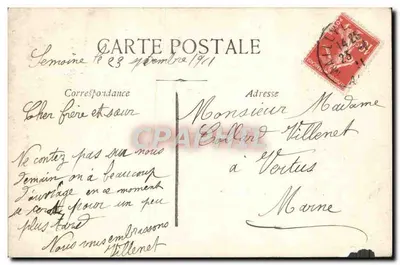 CARTE POSTALE
Semoine le 23 1911
Correspondance
Adresse
Cher frère et sœur
Ne contez pas sur nous
demain on a beaucoup
d'ouvrage en ce moment
pour un peu
plus tard
Nous vous embrassons
Villenet
Monsieur Madame
Villenet
à Vertus
Marne
CPA-PRENIUM.COM